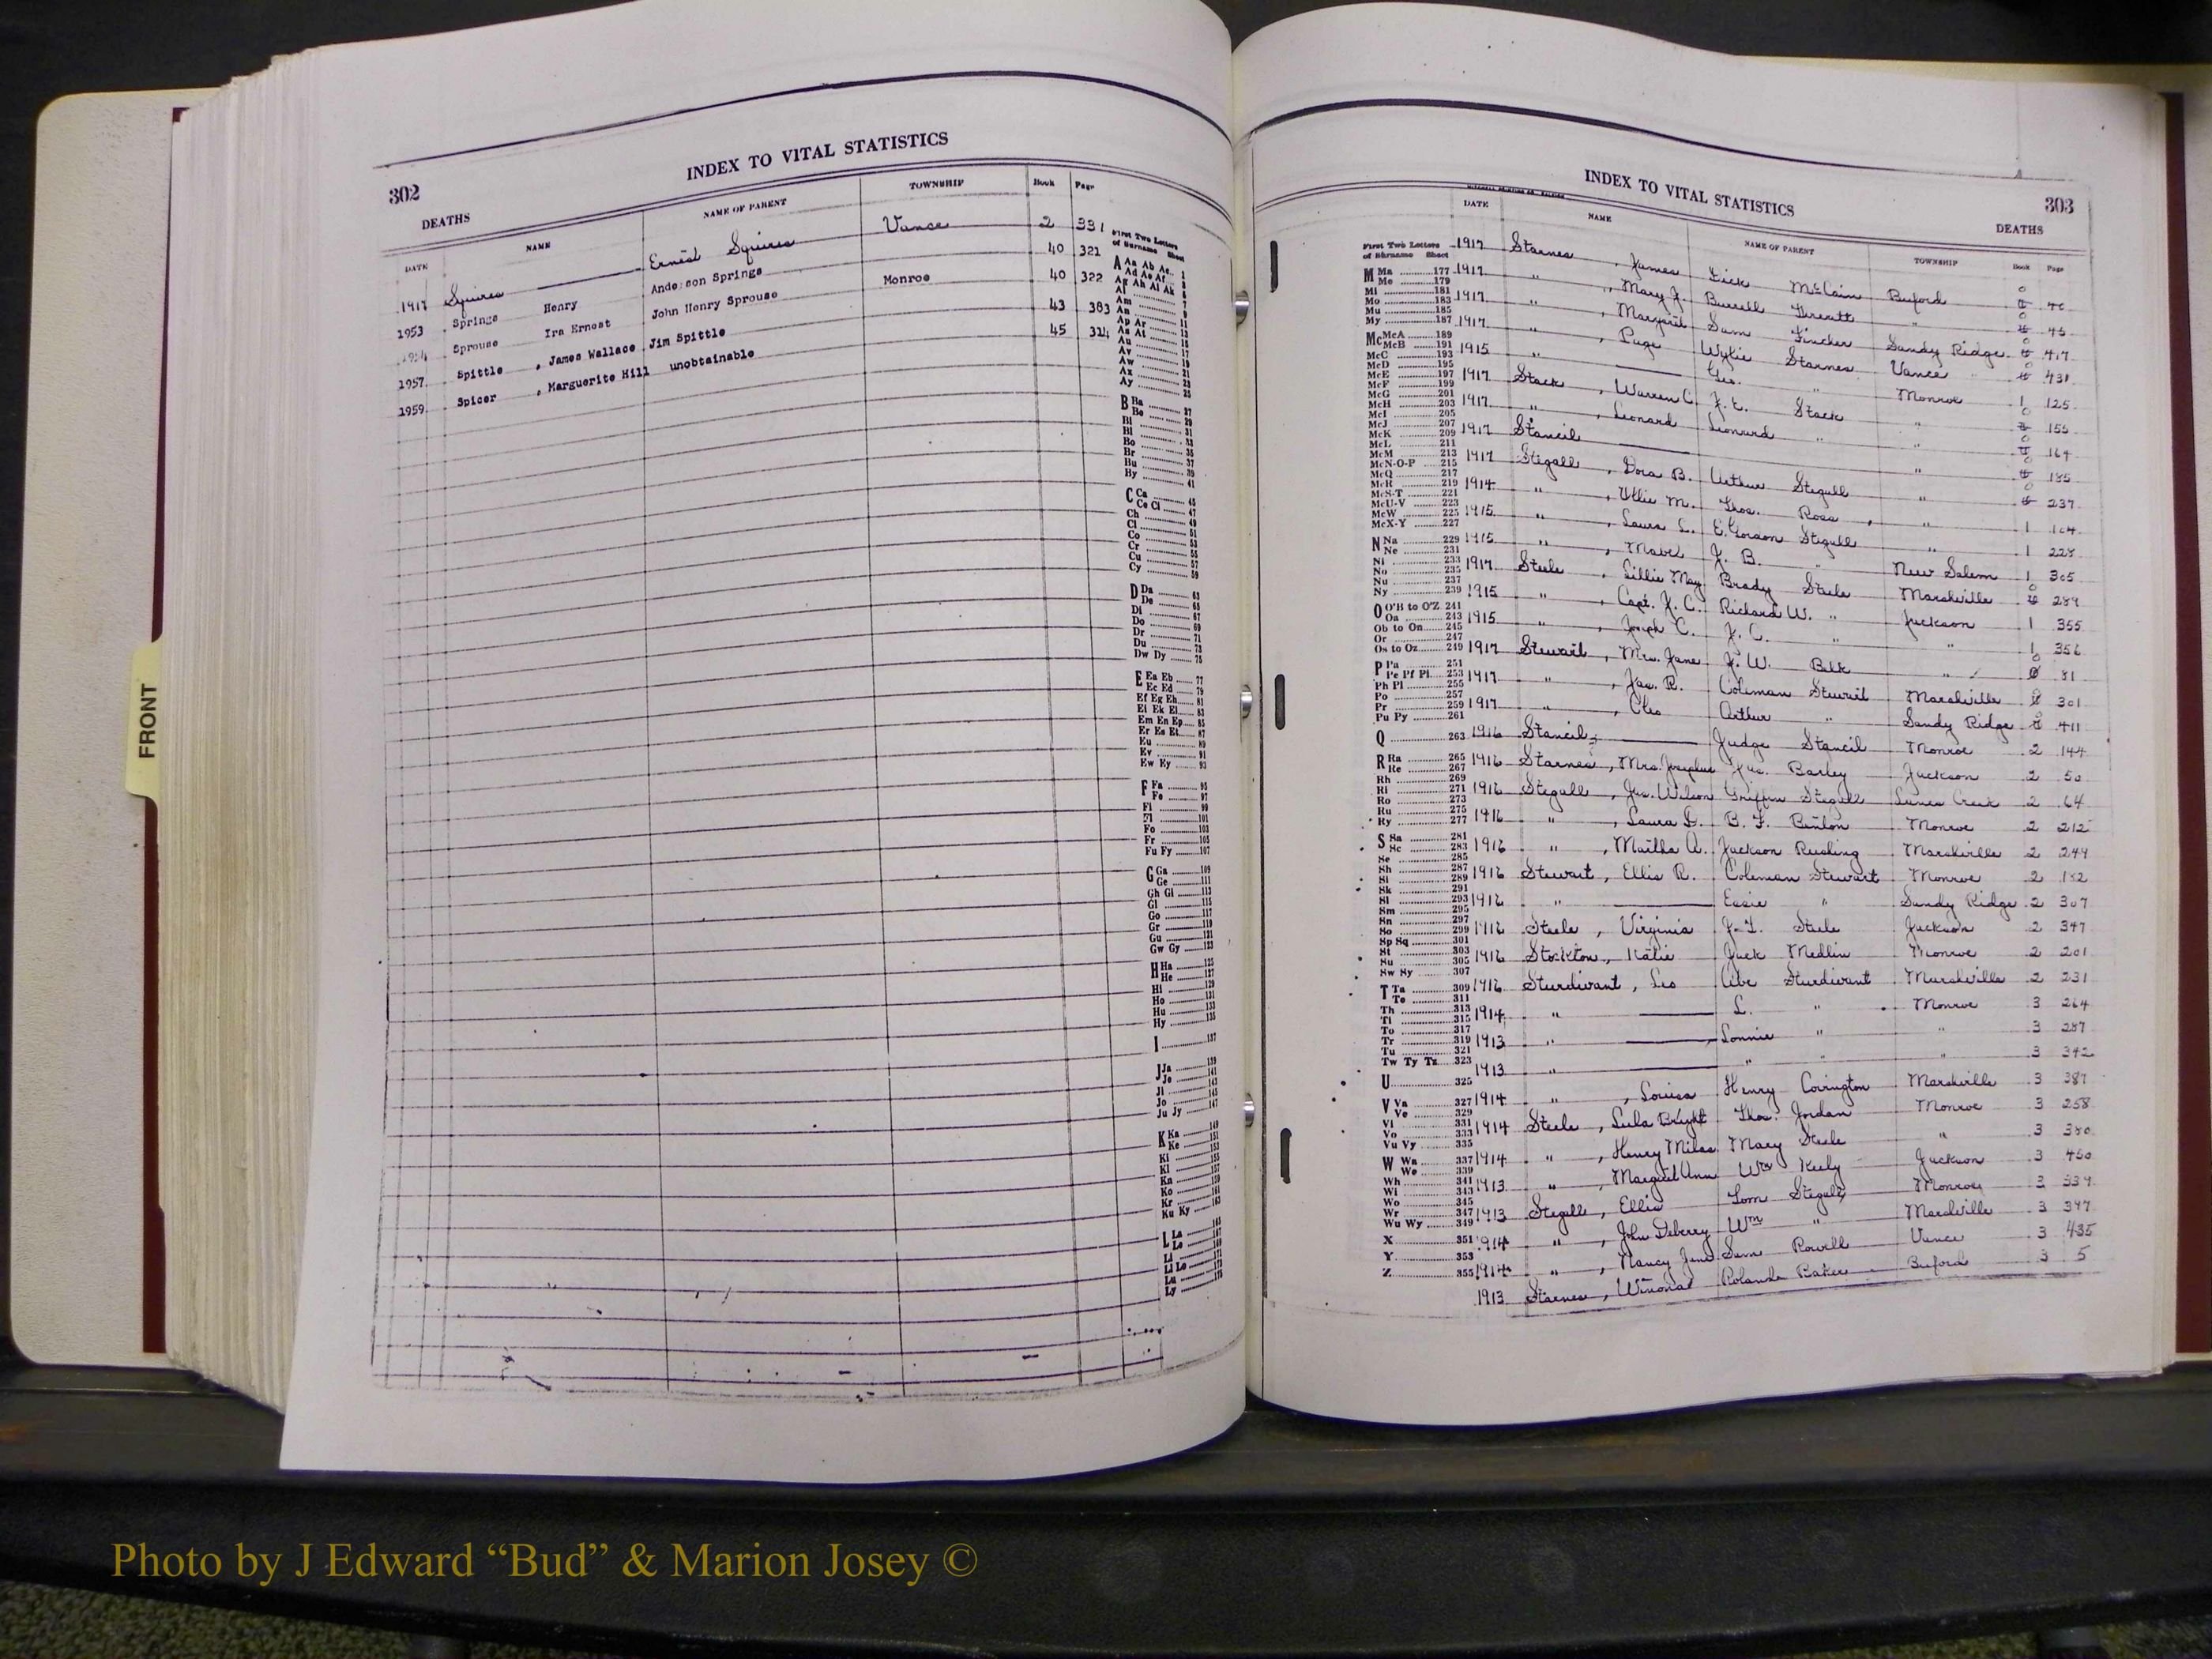 302
INDEX TO VITAL STATISTICS
DEATHS
DATE NAME NAME OF PARENT TOWNSHIP Book Page
1917 Squires Ernest Squires Vance 2 331
1953 Springs Henry Anderson Springs 40 321
1954 Sprouse Ira Ernest John Henry Sprouse Monroe 40 322
1957 Spittle , James Wallace Jim Spittle 43 383
1959 Spicer , Marguerite Hill unobtainable 45 314
First Two Letters
of Surname Sheet
A Aa Ab Ac 1
B Ba 27
Be 29
Bi 31
Bl 33
Bo 35
Br 37
Bu 39
By 41
C Ca 45
Ce Ci 47
Ch 49
Cl 51
Co 53
Cr 55
Cu 57
Cy 59
D Da 63
De 65
Di 67
Do 69
Dr 71
Du 73
Dw Dy 75
E Ea Eb 77
Ec Ed 79
Ef Eg Eh 81
Ei Ek El 83
Em En Ep 85
Er Es Et 87
Eu 89
Ev 91
Ew Ey 93
F Fa 95
Fe 97
Fi 99
Fl 101
Fo 103
Fr 105
Fu Fy 107
G Ga 109
Ge 111
Gh Gi 113
Gl 115
Go 117
Gr 119
Gu 121
Gw Gy 123
H Ha 125
He 127
Hi 129
Ho 131
Hu 133
Hy 135
I 137
J Ja 139
Je 141
Ji 143
Jo 145
Ju Jy 147
K Ka 149
Ke 151
INDEX TO VITAL STATISTICS
303
DEATHS
DATE NAME NAME OF PARENT TOWNSHIP Book Page
1917 Starnes , James Dick McCain Buford 0
1917 " , Mary J. Burrell Threatt " 0 45
1917 " , Margaret Sam Fincher Sandy Ridge 0 417
1917 " , Page Wylie Starnes Vance 0 431
1915 " Geo. " Monroe 1 125
1917 Stack , Warren C. J. E. Stack " 0 155
1917 " , Leonard Leonard " " 0 164
1917 Stancil " 0 185
1917 Stegall , Dora B. Arthur Stegall " 0 237
1914 " , Ollie M. Thos. Ross " 1 104
1915 " , Laura L. E. Gordon Stegall " 1 228
1915 " , Mabel J. B. " New Salem 1 305
1917 Steele , Lillie May Brady Steele Marshville 0 289
1915 " , Capt. J. C. Richard W. " Jackson 1 355
1915 " , Joseph C. J. C. " " 1 356
1917 Stewart , Mrs. Jane J. W. Belk " 0 81
1917 " , Jas. R. Coleman Stewart Marshville 0 301
1917 " , Cleo Arthur " Sandy Ridge 0 411
1916 Stancil Judge Stancil Monroe 2 144
1916 Starnes , Mrs. Josephus Jas. Barley Jackson 2 50
1916 Stegall , Jas. Wilson Griffin Stegall Lanes Creek 2 64
1916 " , Laura D. B. F. Benton Monroe 2 212
1916 " , Martha A. Jackson Rushing Marshville 2 244
1916 Stewart , Ellis R. Coleman Stewart Monroe 2 182
1916 " Essie " Sandy Ridge 2 307
1916 Steele , Virginia J. T. Steele Jackson 2 347
1916 Stockton , Katie Jack Medlin Monroe 2 201
1916 Sturdivant , Leo Abe Sturdivant Marshville 2 231
1914 " L. " Monroe 3 264
1913 " Lonnie " " 3 287
1913 " " " " 3 342
1914 " , Louisa Henry Covington Marshville 3 387
1914 Steele , Lula Bright Thos. Jordan Monroe 3 258
1914 " , Henry Milas Mary Steele " 3 380
1913 " , Margaret Ann Wm Keely Jackson 3 450
1913 Stegall , Ellis Lom Stegall Monroe 3 339
1914 " , John Deberry Wm " Marshville 3 397
1914 " , Nancy Jane Sam Rowell Vance 3 435
1913 Starnes , Winona Roland Baker Buford 3 5
First Two Letters
of Surname Sheet
M Ma 177
Me 179
Mi 181
Mo 183
Mu 185
My 187
Mc McA 189
McB 191
McC 193
McD 195
McE 197
McF 199
McG 201
McH 203
McI 205
McJ 207
McK 209
McL 211
McM 213
McN-O-P 215
McQ 217
McR 219
McS-T 221
McU-V 223
McW 225
McX-Y 227
N Na 229
Ne 231
Ni 233
No 235
Nu 237
Ny 239
O O'B to O'Z 241
Oa 243
Ob to On 245
Or 247
Os to Oz 249
P Pa 251
Pe Pf Pi 253
Ph Pl 255
Po 257
Pr 259
Pu Py 261
Q 263
R Ra 265
Re 267
Rh 269
Ri 271
Ro 273
Ru 275
Ry 277
S Sa 281
Sc 283
Se 285
Sh 287
Si 289
Sk 291
Sl 293
Sm 295
Sn 297
So 299
Sp Sq 301
St 303
Su 305
Sw Sy 307
T Ta 309
Te 311
Th 313
Ti 315
To 317
Tr 319
Tu 321
Tw Ty Tz 323
U 325
V Va 327
Ve 329
Vi 331
Vo 333
Vu Vy 335
W Wa 337
We 339
Wh 341
Wi 343
Wo 345
Wr 347
Wu Wy 349
X 351
Y 353
Z 355
FRONT
Photo by J Edward “Bud” & Marion Josey ©